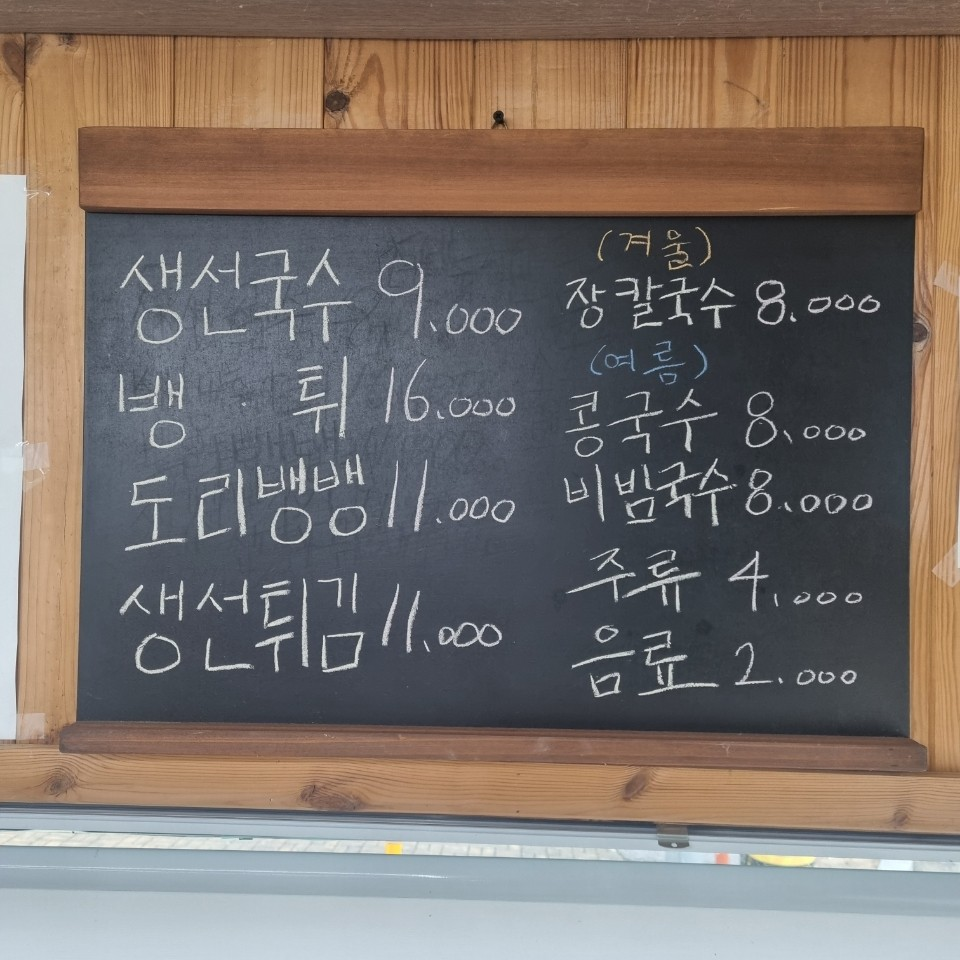 생선국수 9.000
뱅 튀 16.000
도리뱅뱅 11.000
생선튀김 11.000
(겨울)
장칼국수 8.000
(여름)
콩국수 8.000
비빔국수 8.000
주류 4.000
음료 2.000